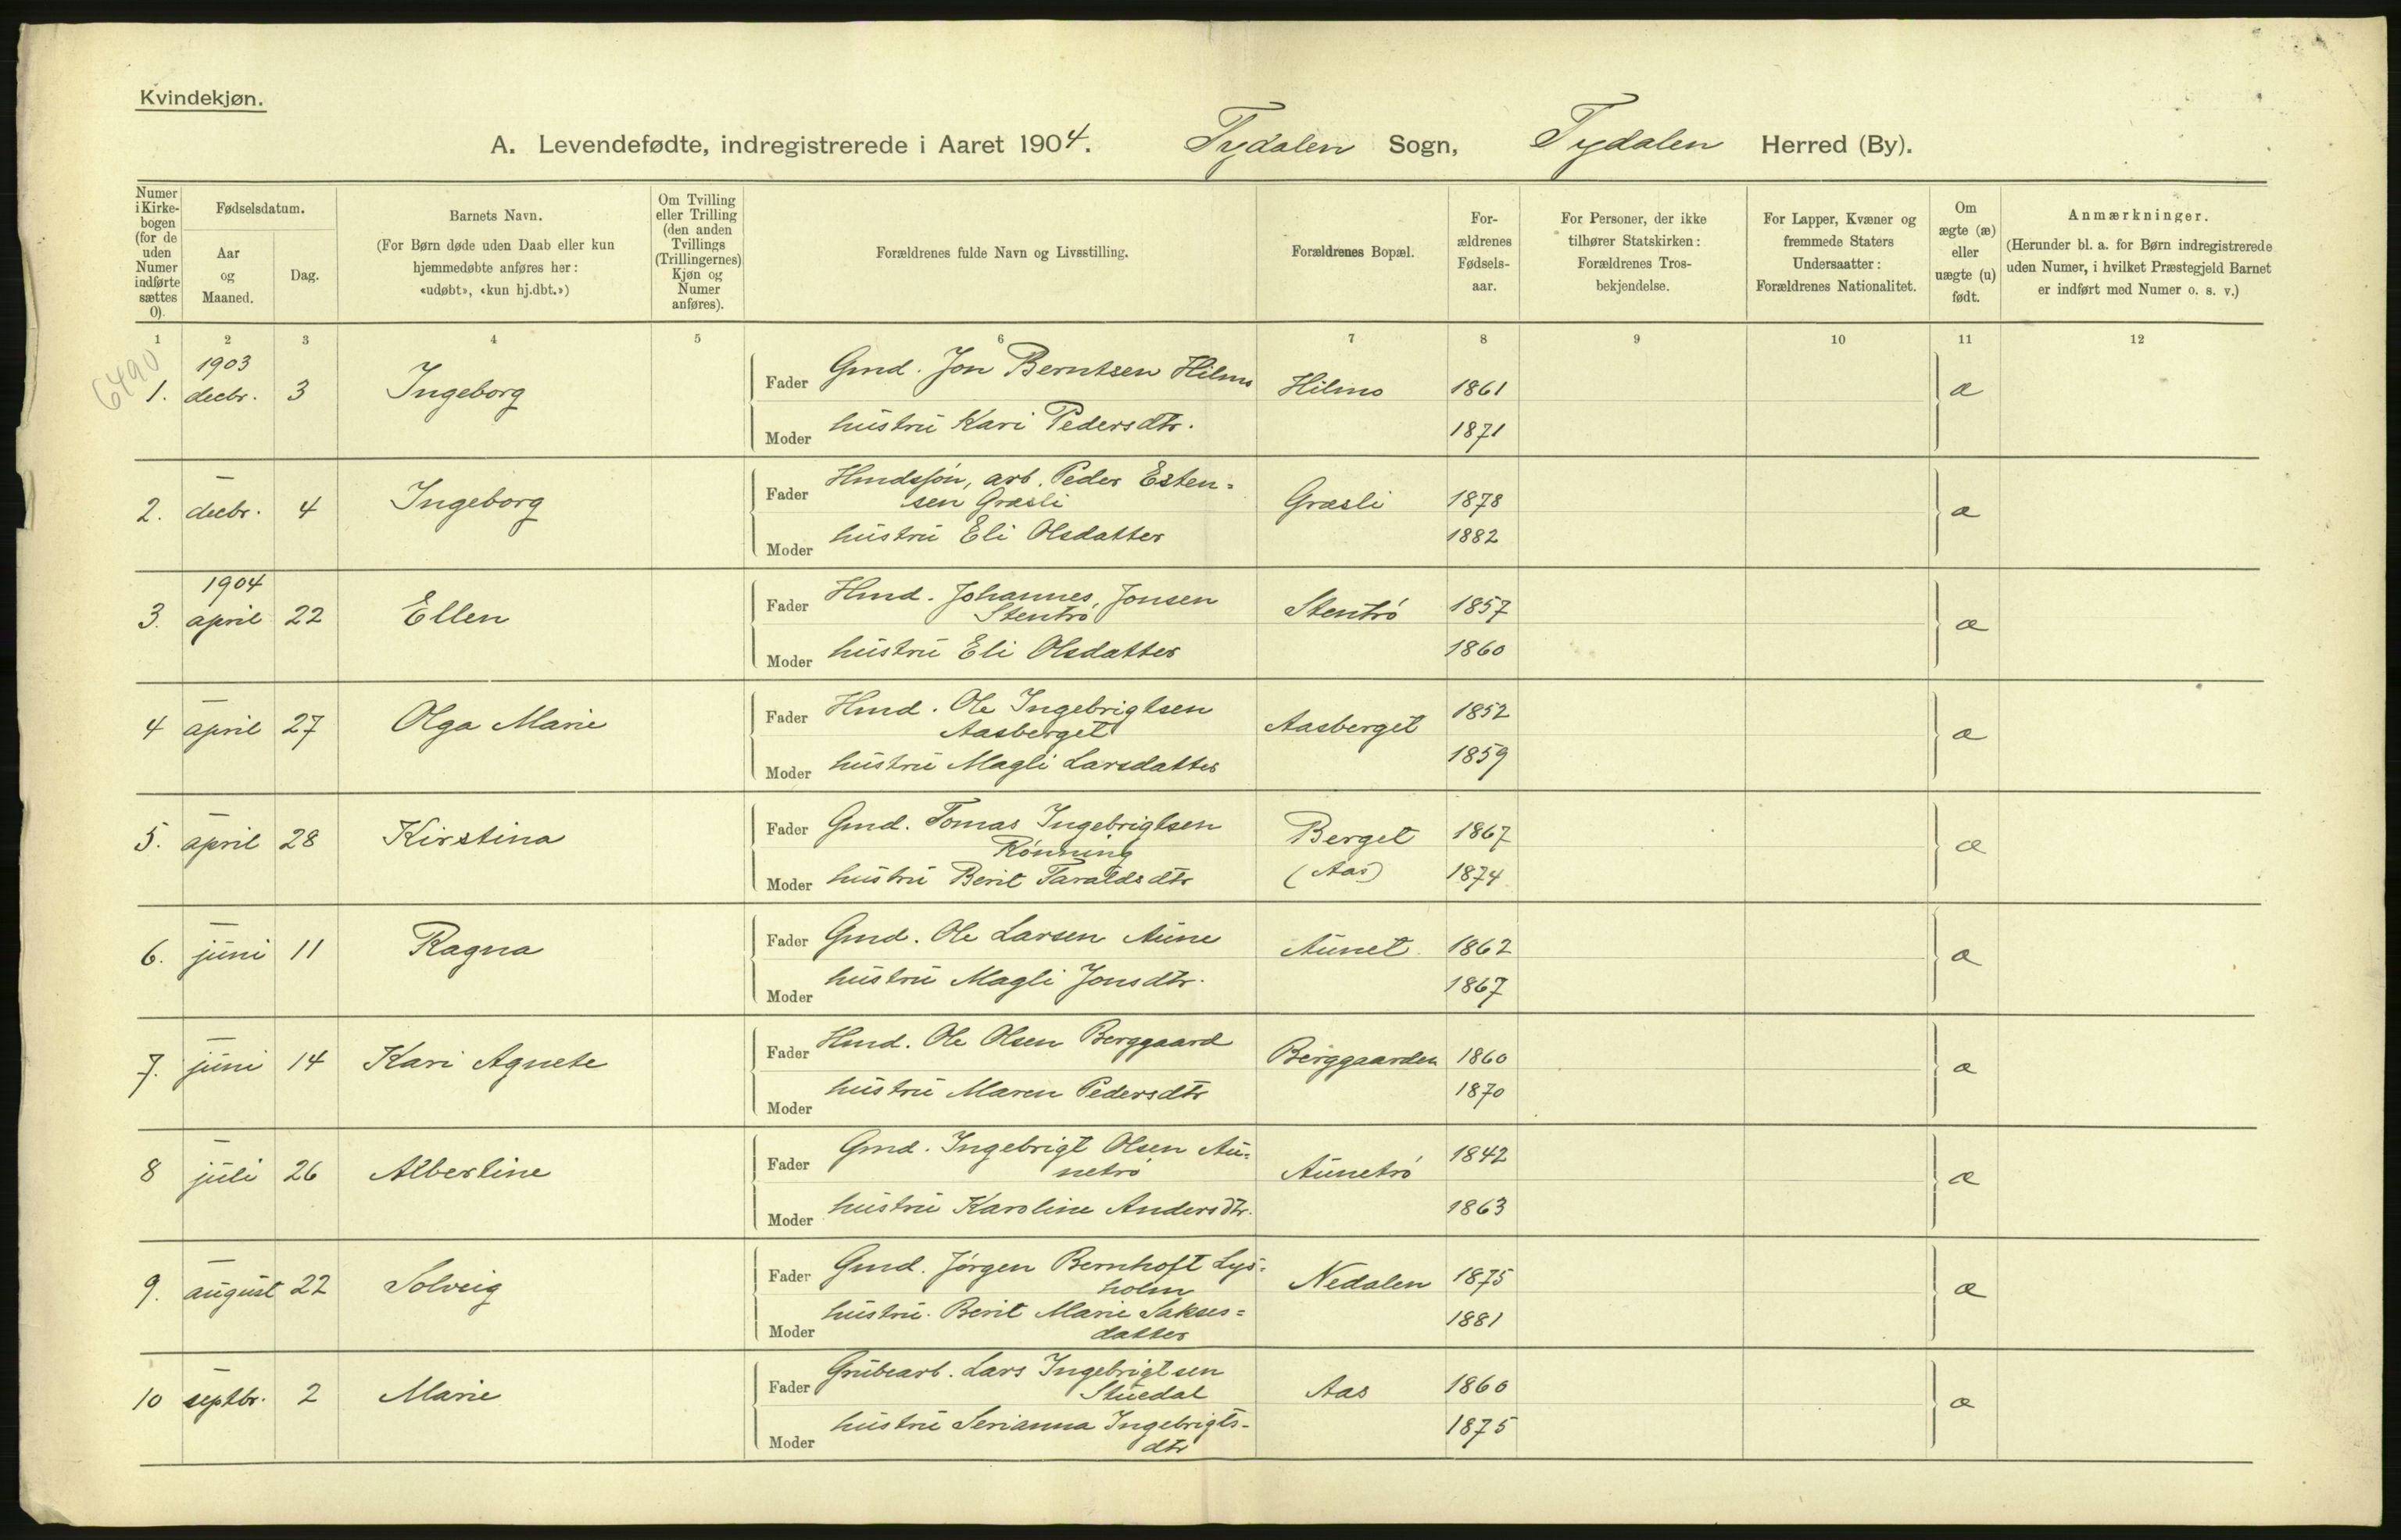 Kvindekjøn.
A. Levendefødte, indregistrerede i Aaret 1904. Tydalen Sogn, Tydalen Herred (By).
Numer i Kirke- bogen (for de uden Numer indførte sættes 0).
Fødselsdatum.
Aar og Maaned.
Dag.
Barnets Navn.
(For Børn døde uden Daab eller kun
hjemmedøbte anføres her:
«udøbt», «kun hj.dbt.»)
Om Tvilling eller Trilling (den anden Tvillings (Trillingernes) Kjøn og Numer anføres).
Forældrenes fulde Navn og Livsstilling.
Forældrenes Bopæl.
For- ældrenes Fødsels- aar.
For Personer, der ikke tilhører Statskirken: Forældrenes Tros- bekjendelse.
For Lapper, Kvæner og fremmede Staters Undersaatter: Forældrenes Nationalitet.
Om ægte (æ) eller uægte (u) født.
Anmærkninger.
(Herunder bl. a. for Børn indregistrerede
uden Numer, i hvilket Præstegjeld Barnet
er indført med Numer o. s. v.)
1 2 3 4 5 6 7 8 9 10 11 12
6490
1903
1. decbr. 3 Ingeborg Fader Gmd. Jon Berntsen Hilmo Hilmo 1861 æ
Moder hustru Kari Pedersdtr. 1871
2. – decbr. 4 Ingeborg Fader Hmdssøn, arb. Peder Esten=
sen Græsli Græsli 1878 æ
Moder hustru Eli Olsdatter 1882
1904
3. april 22 Ellen Fader Hmd. Johannes Jonsen
Stentrø Stentrø 1857 æ
Moder hustru Eli Olsdatter 1860
4 – april 27 Olga Marie Fader Hmd. Ole Ingebrigtsen
Aasberget Aasberget 1852 æ
Moder hustru Magli Larsdatter 1859
5. – april 28 Kirstina Fader Gmd. Tomas Ingebrigtsen
Rønning Berget 1867 æ
Moder hustru Berit Taraldsdtr (Aas) 1874
6. – juni 11 Ragna Fader Gmd. Ole Larsen Aune Aunet 1862 æ
Moder hustru Magli Jonsdtr. 1867
7. – juni 14 Kari Agnete Fader Hmd. Ole Olsen Berggaard Berggaarden 1860 æ
Moder hustru Maren Pedersdtr 1870
8 – juli 26 Albertine Fader Gmd. Ingebrigt Olsen Au=
netrø Aunetrø 1842 æ
Moder hustru Karoline Andersdtr. 1863
9. – august 22 Solveig Fader Gmd. Jørgen Bernhoft Lys=
holm Nedalen 1875 æ
Moder hustru Berit Marie Sakses=
datter 1881
10 – septbr. 2 Marie Fader Grubearb. Lars Ingebrigtsen
Stuedal Aas 1860 æ
Moder hustru Serianna Ingebrigts-
dtr 1875